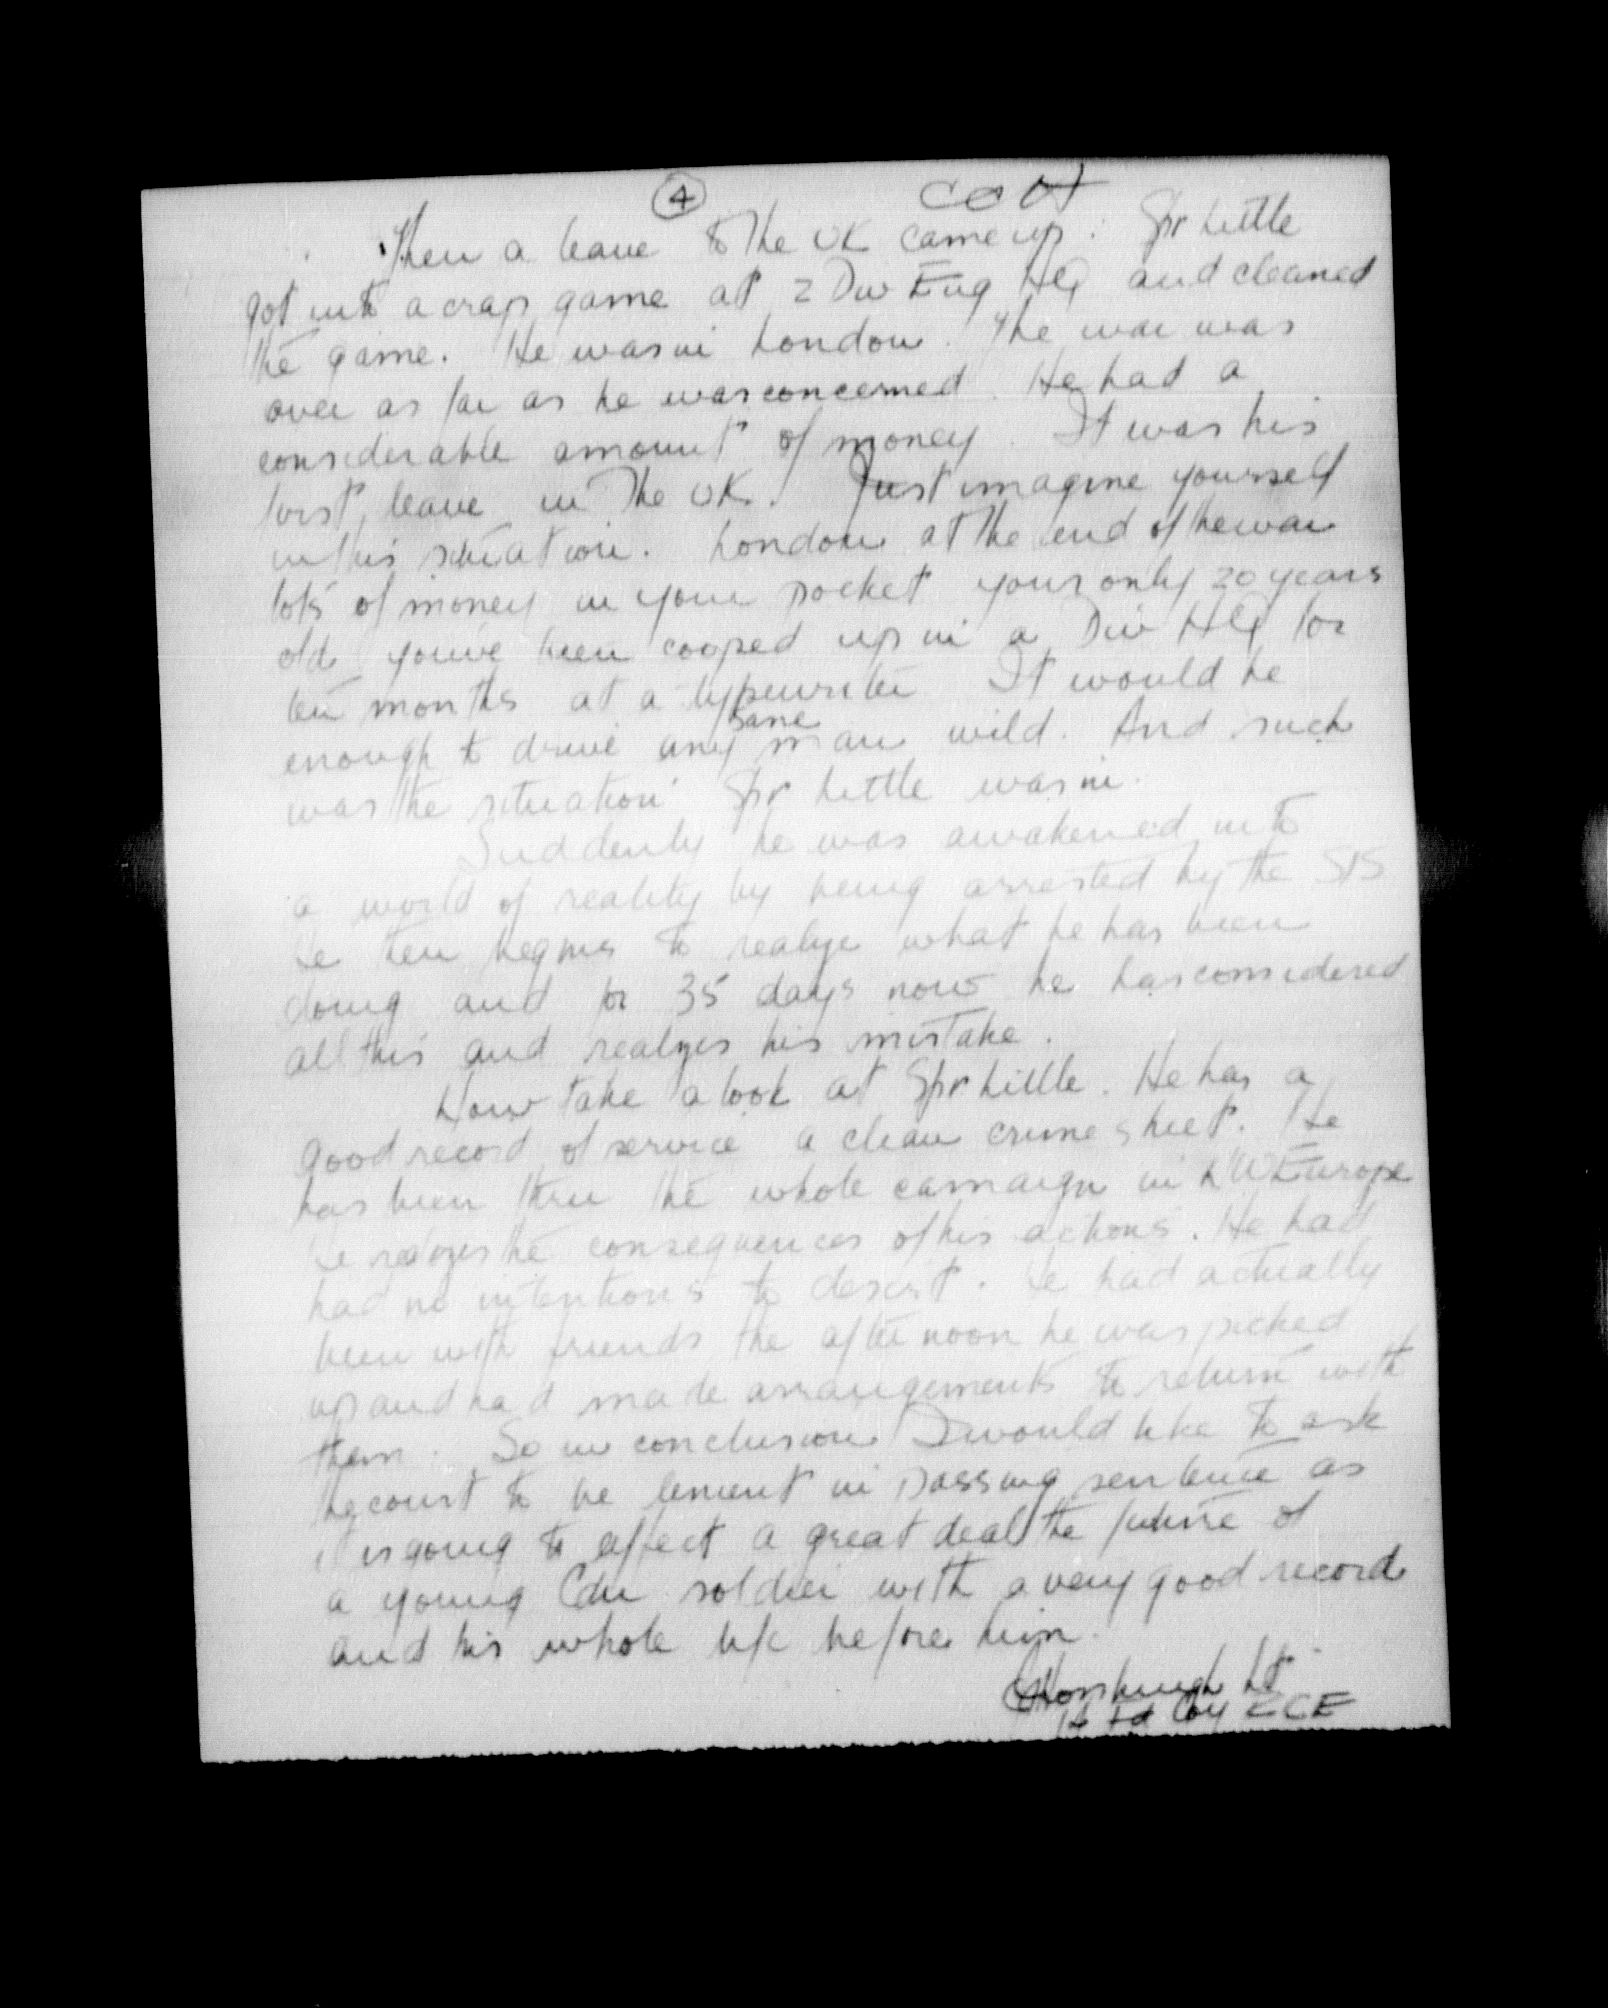 4
Then a leave to the UK came up. Spr Little
got into a crap game at 2 Div Eng HQ and cleaned
the game. He was in London. The war was
over as far as he was concerned. He had a
considerable amount of money. It was his
first leave in the UK. Just imagine yourself
in this situation. London at the end of the war
lots of money in your pocket your only 20 years
old youve been cooped up in a Div HQ for
ten months at a typewriter It would be
sane
enough to drive any man wild. And such
was the situation Spr Little was in.
Suddenly he was awakened into
a world of reality by being arrested by the SIS
He then begins to realize what he has been
doing and for 35 days now he has considered
all this and realizes his mistake.
Now take a look at Spr Little. He has a
good record of service a clean crime sheet. He
has been thru the whole campaign in NW Europe
He realizes the consequences of his actions. He had
had no intentions to desert. He had actually
been with friends the afternoon he was picked
up and had made arrangements to return with
them. So in conclusion I would like to ask
the court to be lenient in passing sentence as
it is going to affect a great deal the future of
a young Cdn soldier with a very good record
and his whole life before him.
Lt
Fd Coy RCE